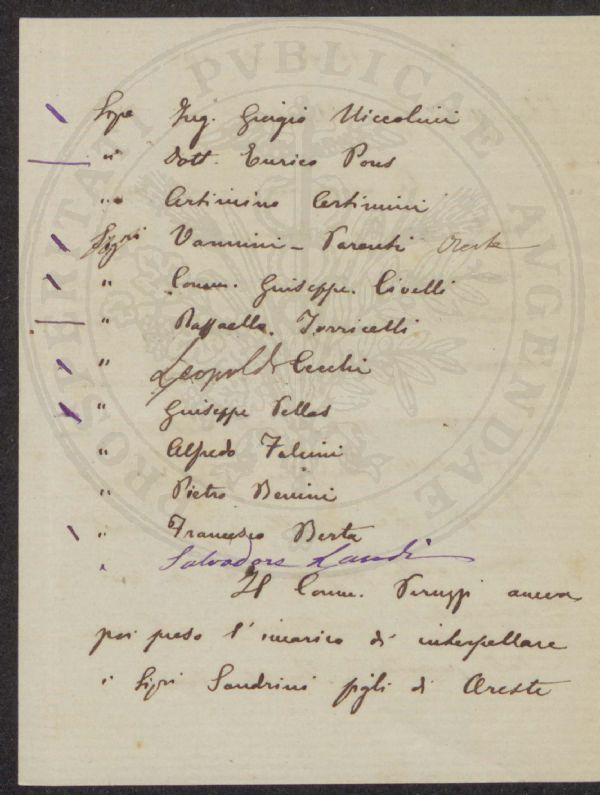 PROSPERITATI PVBLICAE AVGENDAE
Sigri Ing. Giorgio Niccolini
" Dott. Enrico Pons
" Artimino Artimini
Sigri Vannini - Parenti Oreste
" Comm. Giuseppe Civelli
" Raffaello Torricelli
" Leopoldo Cecchi
" Giuseppe Pellas
" Alfredo Falcini
" Pietro Benini
" Francesco Berta
" Salvadore Landi
Il Comm. Peruzzi aveva
poi preso l'incarico di interpellare
i Sigri Sandrini figli di Oreste